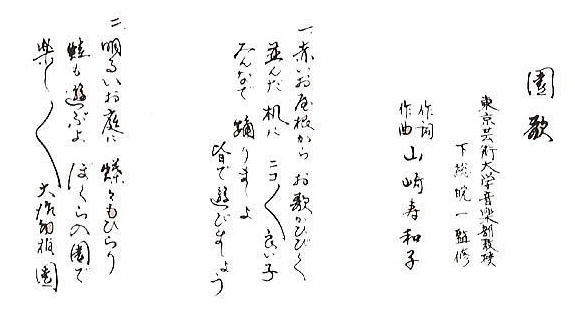 園歌
東京芸術大学音楽部教授
下総皖一監修
作詞
作曲 山崎寿和子
一、赤いお屋根から お歌がひびく
並んだ机に ニコ〱良い子
みんなで 踊りましよ
皆で遊びましよう
二、明るいお庭に 蝶々もひらり
蛙も遊ぶよ ぼくらの園で
楽し〱 園